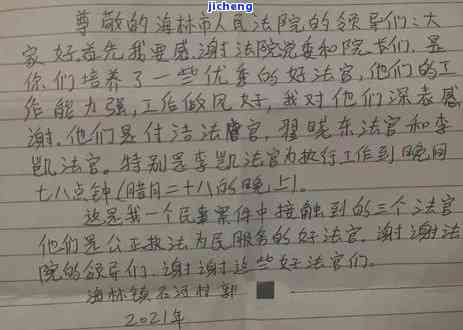 jicheng
尊敬的海林市人民法院的领导们:大
家好,首先我要感谢法院党委和院长们,是
你们培养了一些优秀的好法官,他们的工
作能力强,工作做风大好,我对他们深表感
谢,他们是付洁法官,翟晓东法官和李
凯法官。特别是李凯法官为执行工作到晚间
七八点钟(腊月二十八的晚上)。
这是我一个民事案件中接触到的三个法官
他们是公正执法为民服务的好法官,谢谢法
院的领导们,谢谢这些好法官们。
海林镇石河村郭
2021年